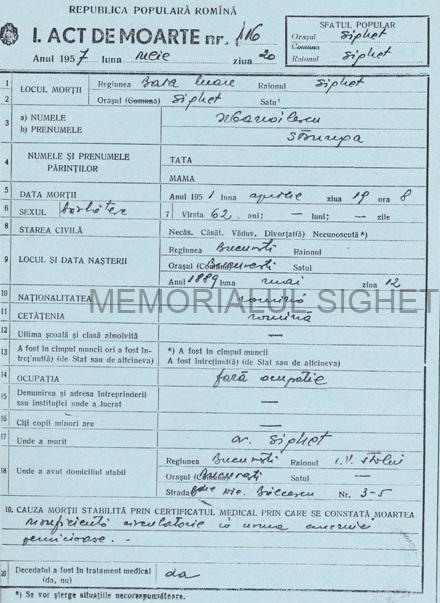 REPUBLICA POPULARĂ ROMÎNĂ
I. ACT DE MOARTE nr. 116
Anul 1957 luna ziua 20
SFATUL POPULAR
Orașul Sighet
Comuna
Raionul Sighet
1 LOCUL MORȚII Regiunea Baia Mare Raionul Sighet
2 Orașul (Comuna) Sighet Satul
3 a) NUMELE Manoilescu
b) PRENUMELE
4 NUMELE ȘI PRENUMELE PĂRINȚILOR TATA
MAMA
5 DATA MORȚII Anul 1951 luna aprilie ziua 19 ora 8
6 SEXUL bărbătesc 7 Vîrsta 62 ani; — luni; — zile
8 STAREA CIVILĂ Necăs. Căsăt. Văduv, Divorțat(ă) Necunoscută *)
9 LOCUL ȘI DATA NAȘTERII Regiunea București Raionul
Orașul (Comuna) București Satul
Anul 1889 luna mai ziua 12
10 NAȚIONALITATEA romînă
11 CETĂȚENIA romînă
MEMORIALUL SIGHET
12 Ultima școală și clasă absolvită —
13 A fost în cîmpul muncii ori a fost întreținut(ă) (de Stat sau de altcineva) *) A fost în cîmpul muncii
A fost întreținut(ă) (de Stat sau de altcineva)
14 OCUPAȚIA fără ocupație
15 Denumirea și adresa întreprinderii sau instituției unde a lucrat —
16 Cîți copii minori are —
17 Unde a murit or. Sighet
18 Unde a avut domiciliul stabil Regiunea București Raionul I.V. Stalin
Orașul (Comuna) București —
Strada Bdul Nic. Bălcescu Nr. 3-5
19. CAUZA MORȚII STABILITĂ PRIN CERTIFICATUL MEDICAL PRIN CARE SE CONSTATĂ MOARTEA
Insuficiență circulatorie în urma anemiei
pernicioase. -
20 Decedatul a fost în tratament medical (da, nu) da
*) Se vor șterge situațiile necorespunzătoare.